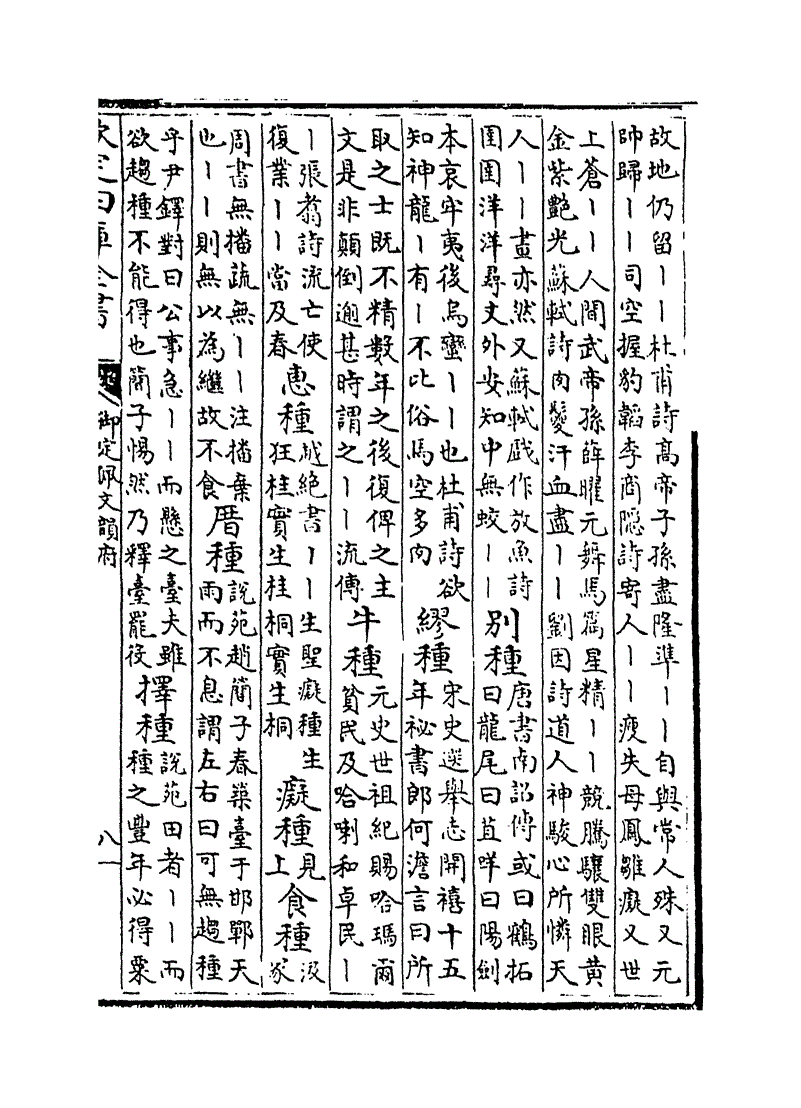 故地仍留丨丨杜甫詩高帝子孫盡隆準丨丨自與常人殊又元
帥歸丨丨司空握豹韜李商隱詩寄人丨丨瘦失母鳳雛癡又世
上蒼丨丨人間武帝孫薛曜元舞馬篇星精丨丨競騰驤雙眼黄
金紫艷光蘇軾詩肉鬉汗血盡丨丨劉因詩道人神駿心所憐天
人丨丨畫亦然又蘇軾戲作放魚詩
圉圉洋洋尋丈外安知中無蛟丨丨
別種
唐書南詔傳或曰鶴拓
曰龍尾曰苴咩曰陽劍
本哀牢夷後烏蠻丨丨也杜甫詩欲
知神龍丨有丨不比俗馬空多肉
繆種
宋史選舉志開禧十五
年祕書郎何澹言曰所
取之士既不精數年之後復俾之主
文是非顛倒逾甚時謂之丨丨流傳
牛種
元史世祖紀賜哈瑪爾
貧民及哈喇和卓民丨
丨張翥詩流亡使
復業丨丨當及春
惠種
越絶書丨丨生聖癡種生
狂桂實生桂桐實生桐
癡種
見
上
食種
汲
冢
周書無播蔬無丨丨注播棄
也丨丨則無以為繼故不食
厝種
說苑趙簡子春築臺于邯鄲天
雨而不息謂左右曰可無趨種
乎尹鐸對曰公事急丨丨而懸之臺夫雖
欲趨種不能得也簡子惕然乃釋臺罷役
擇種
說苑田者丨丨而
種之豐年必得粟
欽定四庫全書
御定佩文韻府
八一